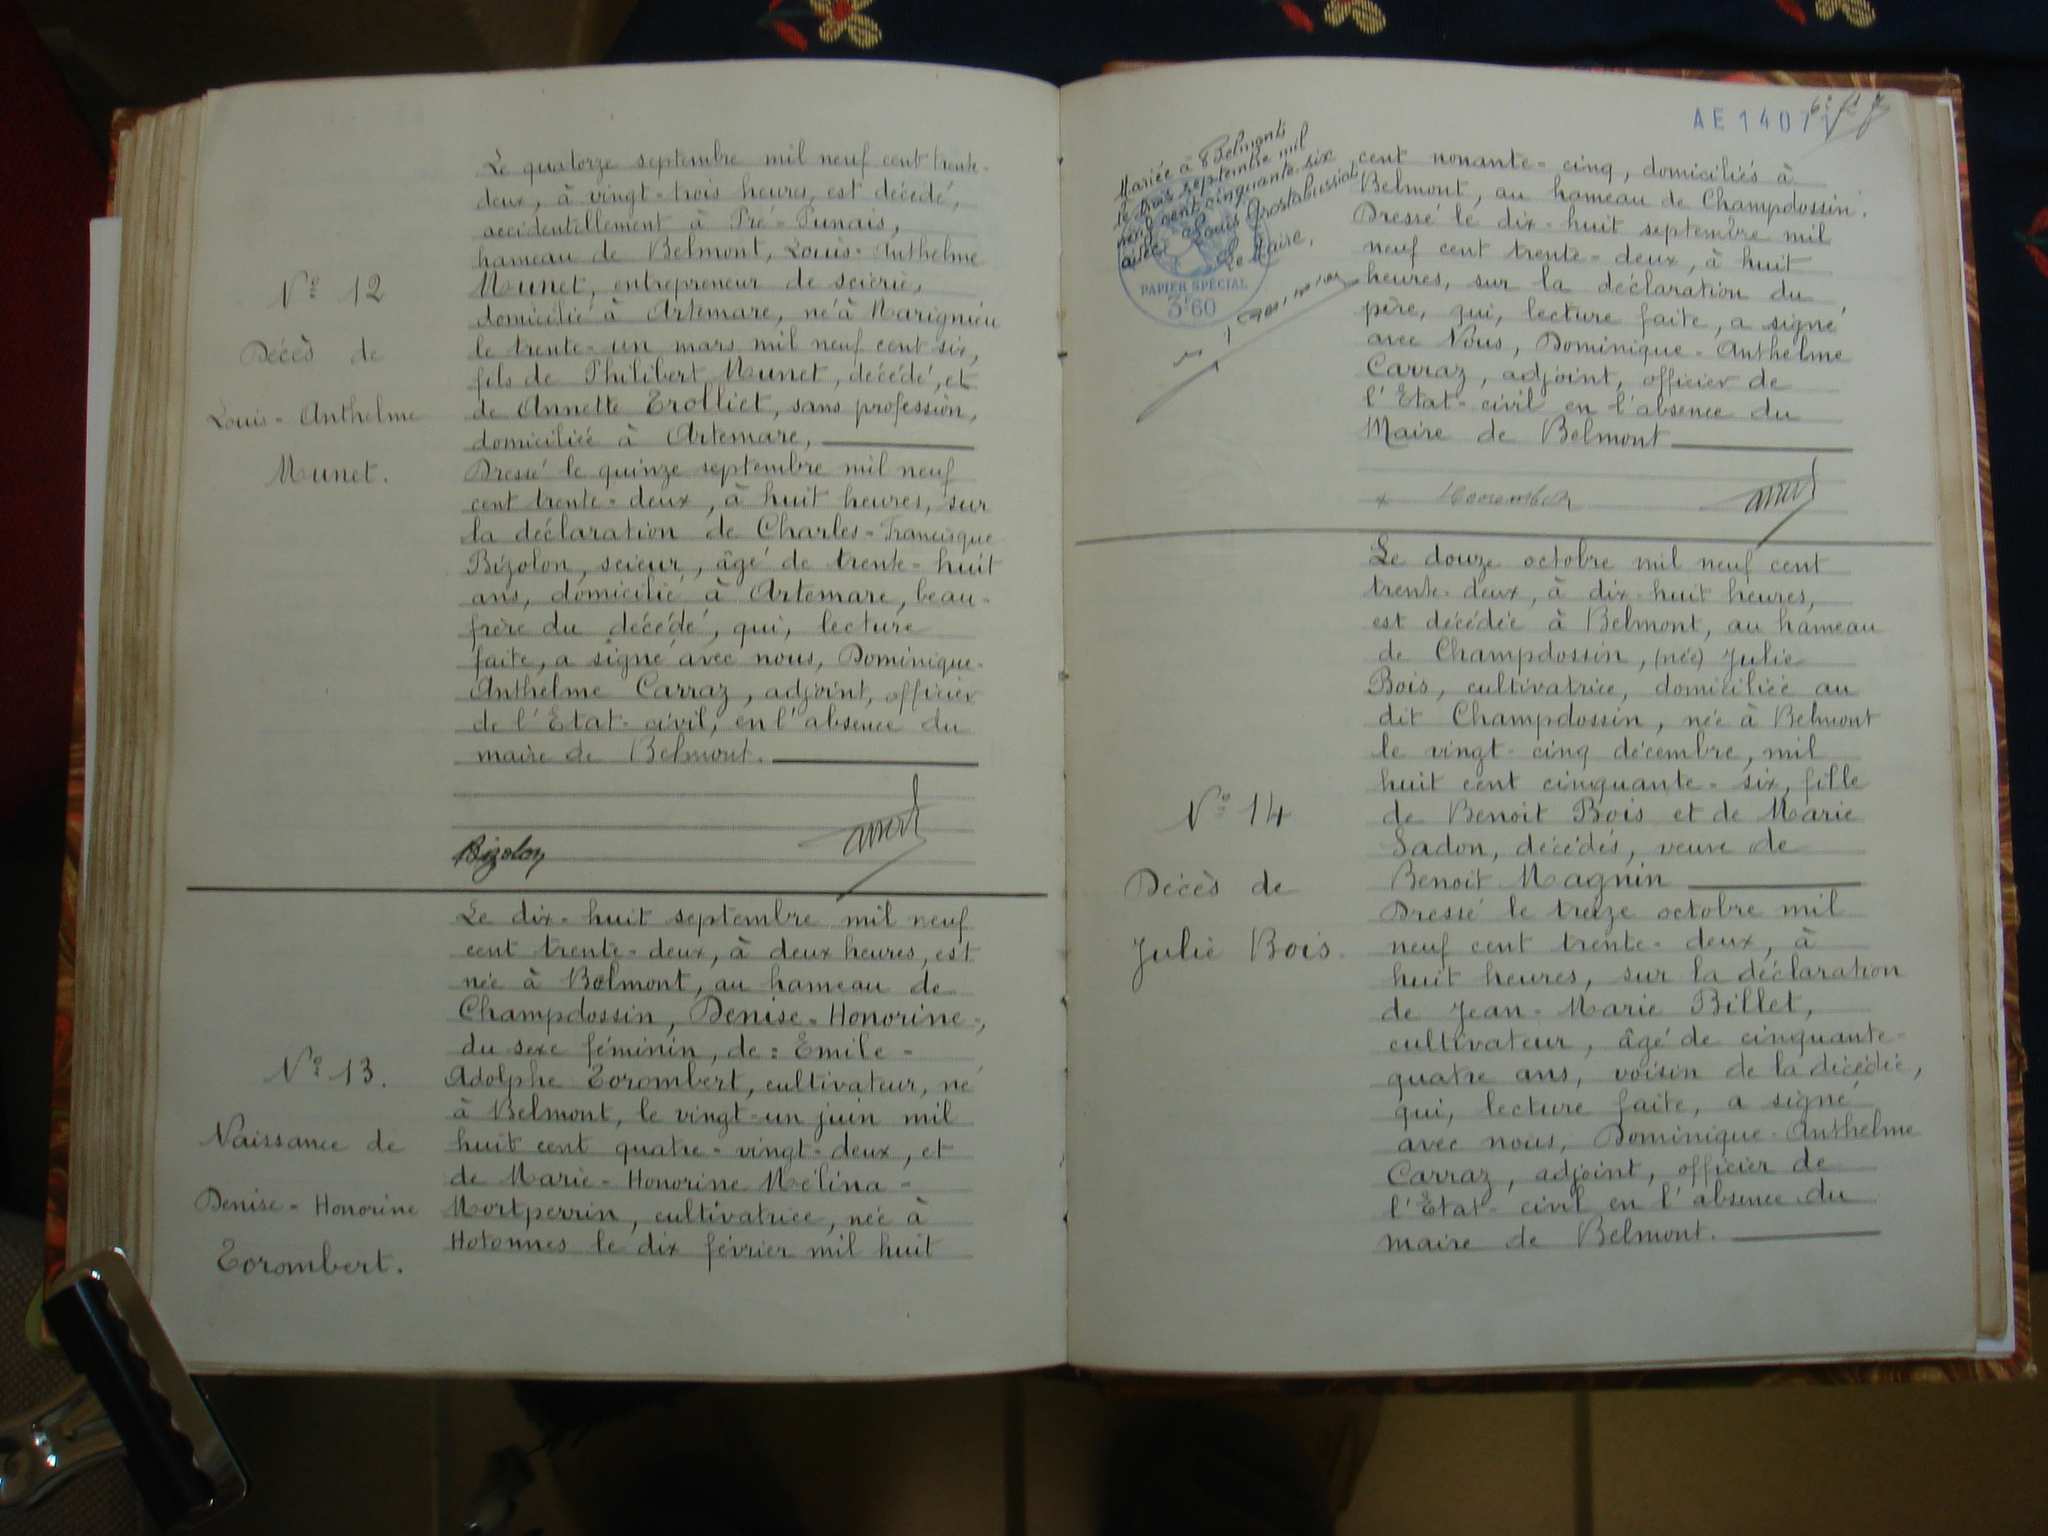 Le quatorze septembre mil neuf cent trente-
deux, à vingt-trois heures, est décédé,
accidentellement à Pré-Punais,
hameau de Belmont, Louis-Anthelme
Munet, entrepreneur de scierie,
domicilié à Artemare, né à Marignieu
le trente-un mars mil neuf cent six,
fils de Philibert Munet, décédé, et
de Annette Trolliet, sans profession,
domiciliée à Artemare,
Dressé le quinze septembre mil neuf
cent trente-deux, à huit heures, sur
la déclaration de Charles-Francisque
Bizolon, scieur, âgé de trente-huit
ans, domicilié à Artemare, beau-
frère du décédé, qui, lecture
faite, a signé avec nous, Dominique-
Anthelme Carraz, adjoint, officier
de l'Etat-civil, en l'absence du
maire de Belmont.
N° 12
Décès de
Louis-Anthelme
Munet.
Bizolon
Le dix-huit septembre mil neuf
cent trente-deux, à deux heures, est
née à Belmont, au hameau de
Champdossin, Denise-Honorine-,
du sexe féminin, de: Emile-
Adolphe Torombert, cultivateur, né
à Belmont, le vingt-un juin mil
huit cent quatre-vingt-deux, et
de Marie-Honorine Mélina-
Mortperrin, cultivatrice, née à
Hotonnes le dix février mil huit
N° 13.
Naissance de
Denise-Honorine
Torombert.
AE 1407
Mariée à Belmont
le trois septembre mil
neuf cent cinquante-six
avec Louis
Le Maire,
PAPIER SPÉCIAL
3F60
cent nonante-cinq, domiciliés à
Belmont, au hameau de Champdossin.
Dressé le dix-huit septembre mil
neuf cent trente-deux, à huit
heures, sur la déclaration du
père, qui, lecture faite, a signé
avec Nous, Dominique-Anthelme
Carraz, adjoint, officier de
l'Etat-civil en l'absence du
Maire de Belmont
Le douze octobre mil neuf cent
trente-deux, à dix-huit heures,
est décédée à Belmont, au hameau
de Champdossin, (née) Julie
Bois, cultivatrice, domiciliée au
dit Champdossin, née à Belmont
le vingt-cinq décembre, mil
huit cent cinquante-six, fille
de Benoit Bois et de Marie
Sadon, décédés, veuve de
Benoit Magnin
Dressé le treize octobre mil
neuf cent trente-deux, à
huit heures, sur la déclaration
de Jean-Marie Billet,
cultivateur, âgé de cinquante-
quatre ans, voisin de la décédée,
qui, lecture faite, a signé
avec nous, Dominique-Anthelme
Carraz, adjoint, officier de
l'Etat-civil en l'absence du
maire de Belmont.
N° 14
Décès de
Julie Bois.